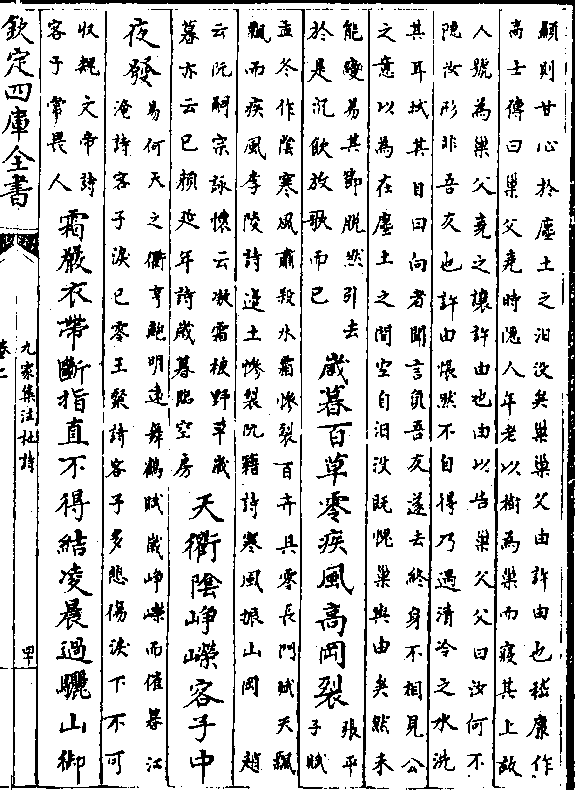 顯則甘心於塵土之汨没矣巢巢父由許由也嵇康作
高士傳曰巢父堯時隠人年老以樹為巢而寢其上故
人號為巢父堯之讓許由也由以告巢父父曰汝何不
隠汝形非吾友也許由悵然不自得乃過清泠之水洗
其耳拭其目曰向者聞言負吾友遂去終身不相見公
之意以為在塵土之間空自汨没既愧巢與由矣然未
能變易其節脱然引去
於是沉飲放歌而已
歲暮百草零疾風高岡裂
張平
子賦
孟冬作陰寒風肅殺氷霜慘裂百卉具零長門賦天飄
飄而疾風李陵詩邉土慘裂阮籍詩寒風振山岡 趙
云阮嗣宗詠懷云凝霜被野草歲
暮亦云已顔延年詩歲暮臨空房
天衢陰崢嶸客子中
夜發
易何天之衢亨鮑明逺舞鶴賦歲崢嶸而催暮江
淹詩客子淚已零王粲詩客子多悲傷淚下不可
收魏文帝詩
客子常畏人
霜嚴衣帶斷指直不得結凌晨過驪山御
欽定四庫全書
九家集注杜詩
卷二